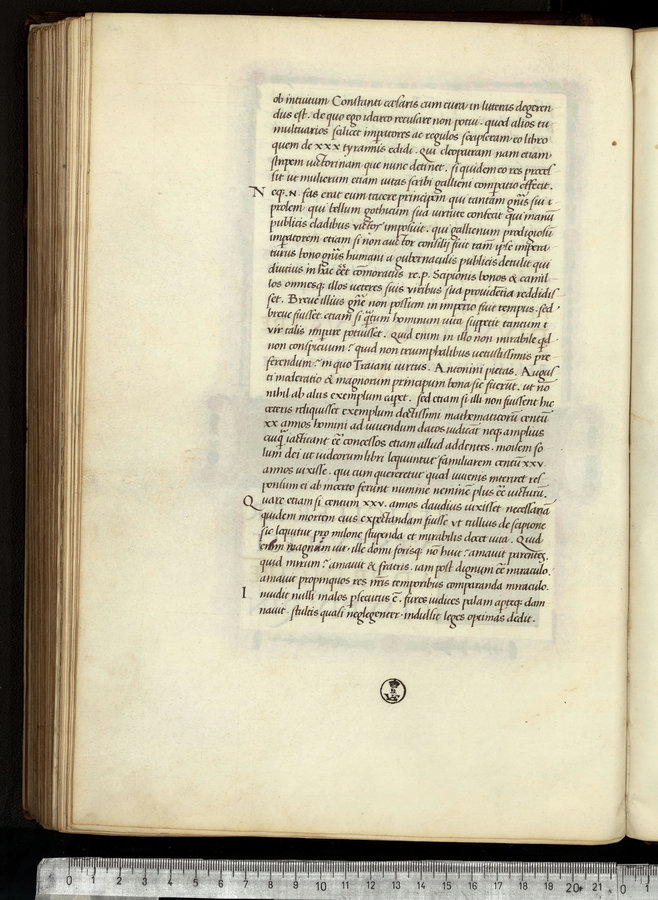 ob intuitum Constanti cæsaris cum cura in litteras degeren
dus est. de quo ego idarco recusare non potui. quod alios tu
multuarios scilicet imp̄atores ac regulos scripseram eo libro
quem de xxx tyrannis edidi. Qui cleopatram nam etiam
stirpem uictorinam que nunc detinet. si quidem eo res proces
sit ut mulierum etiam uitas scribi gallieni comparatio effecit.
N eq;. N. fas erat eum tacere principem qui tantam gn̄is sui
prolem qui bellum gothicum sua uirtute confecit qui manū
publicis cladibus uictor imposuit. qui gallienum prodigiosū
imp̄atorem etiam si non auctor consilij fuit tam ipse impera
turus bono gn̄is humani a gubernaculis publicis detulit qui
diutius in hac ēēt cōmoratus re.p. Scipionis bonos & camil
los omnesq; illos ueteres suis uiribus sua prouidētia reddidis
set. Breue illius gn̄e non possum in imperio fuit tempus. sed
breue fuisset. etiam si q̄tum hominum uita suppetit tantum
uir talis impare potuisset. Quid enim in illo non mirabile qd
non conspicuum? quid non triumphalibus uetustissimis pre
ferendum? in quo Traiani uirtus. Antonini pietas. Augus
ti moderatio & magnorum principum bona sic fuerūt. ut nō
nihil ab alijs exemplum caperet. sed etiam si illi non fuissent hic
ceteris reliquisset exemplum doctissimi mathematicorū centū
xx annos homini ad uiuendum datos iudicāt neq; amplius
cuiq̄ iactitant ēē concessos etiam allud addentes. moisem so
lum dei ut iudeorum libri loquuntur familiarem centū xxv.
annos uixisse. qui cum quereretur quod iuuenis iniret res
ponsum ei ab incerto ferunt numine neminē plus ēē uicturū.
Q uare etiam si centum xxv. annos claudius uixisset necessariā
quidem mortem eius expectandam fuisse ut tullius de scipione
sic loquitur pro milone stupenda et mirabilis docet uita. Quid
enim magnum uir. ille domi forisq; nō huic? amauit parentes.
quid mirum? amauit & fratres. iam post dignum ēē miraculo.
amauit propinquos res nr̄is temporibus comparanda miraculo.
I nuidit nulli malos psecutus ē. fures iudices palam aperteq; dam
nauit. stultis quasi neglegenter. indulsit leges optimas dedit.